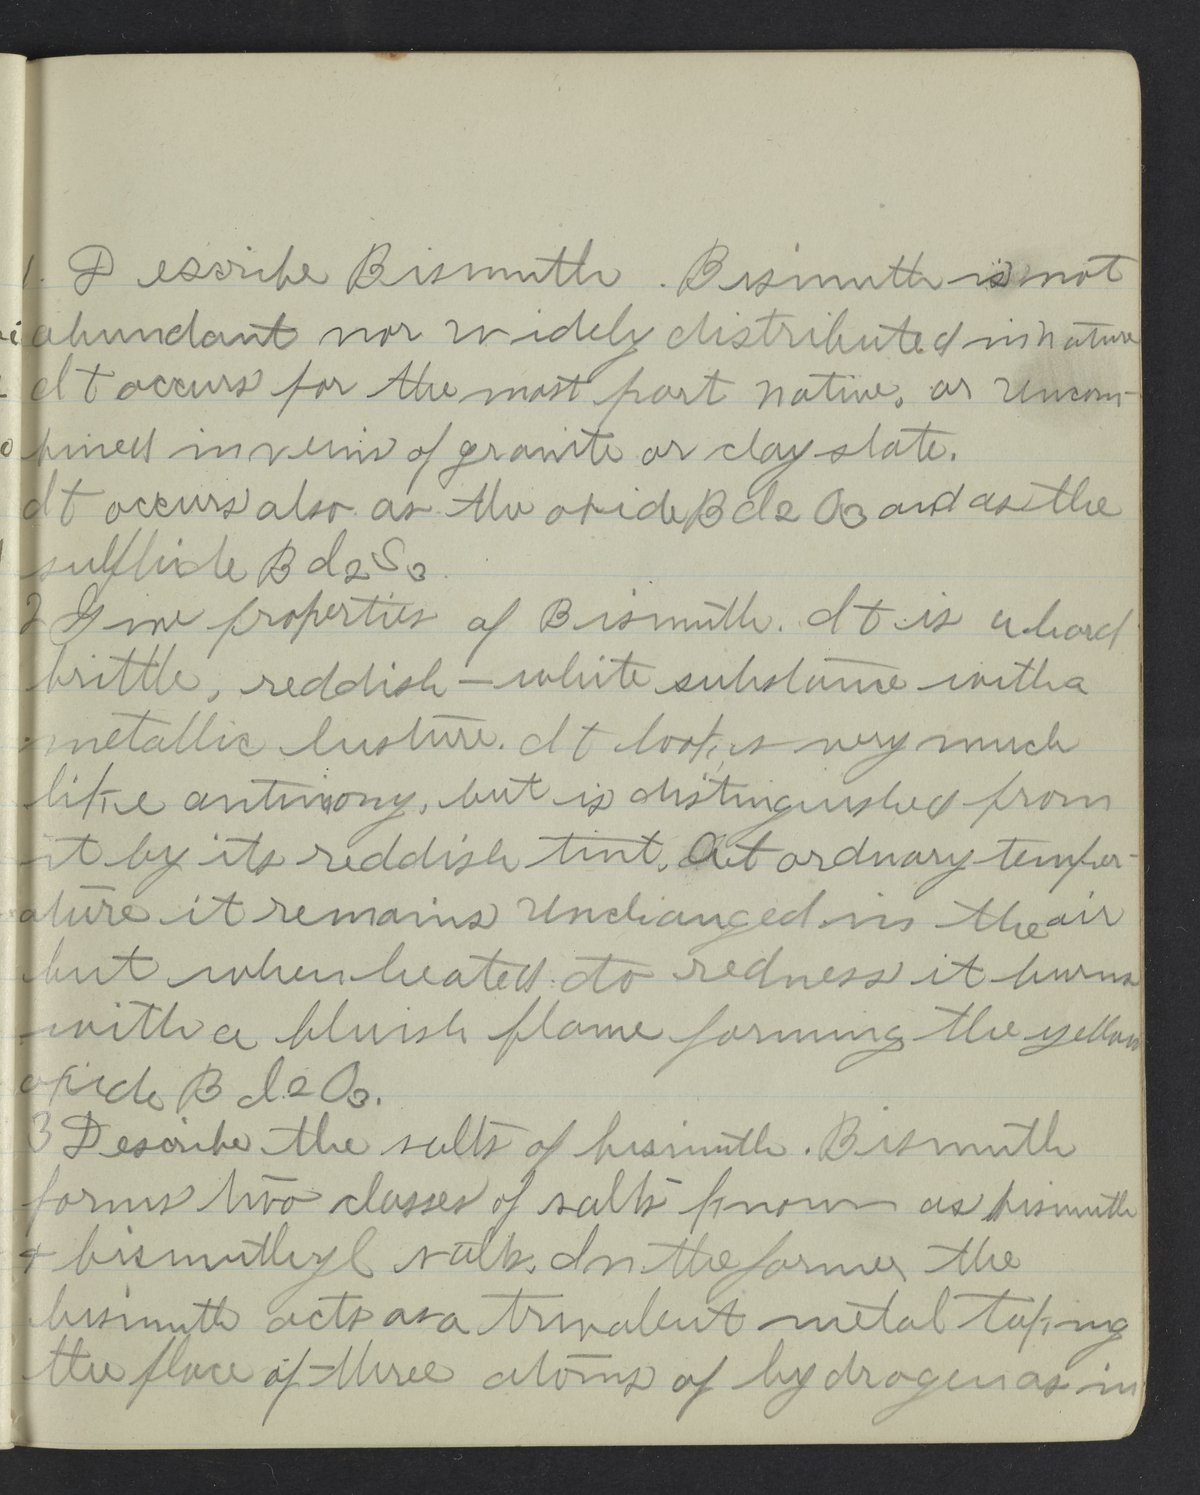 1. Describe Bismuth. Bismuth is not
abundant nor widely distributed in nature
It occurs for the most part native, or uncom-
bined in veins of granite or clay slate.
It occurs also as the oxide Bi2O3 and as the
sulphide Bi2S3.
2 Give properties of Bismuth. It is a hard
brittle, reddish-white substance with a
metallic lusture. It looks very much
like antimony, but is distinguished from
it by its reddish tint. At ordnary temper-
ature it remains unchanged in the air
but when heated to redness it burns
with a bluish flame forming the yellow
oxide Bi2O3.
3 Describe the salts of bismuth. Bismuth
forms two classes of salts known as bismuth
+ bismuthyl salts. In the former the
bismuth acts as a trivalent metal taking
the place of three atoms of hydrogen as in